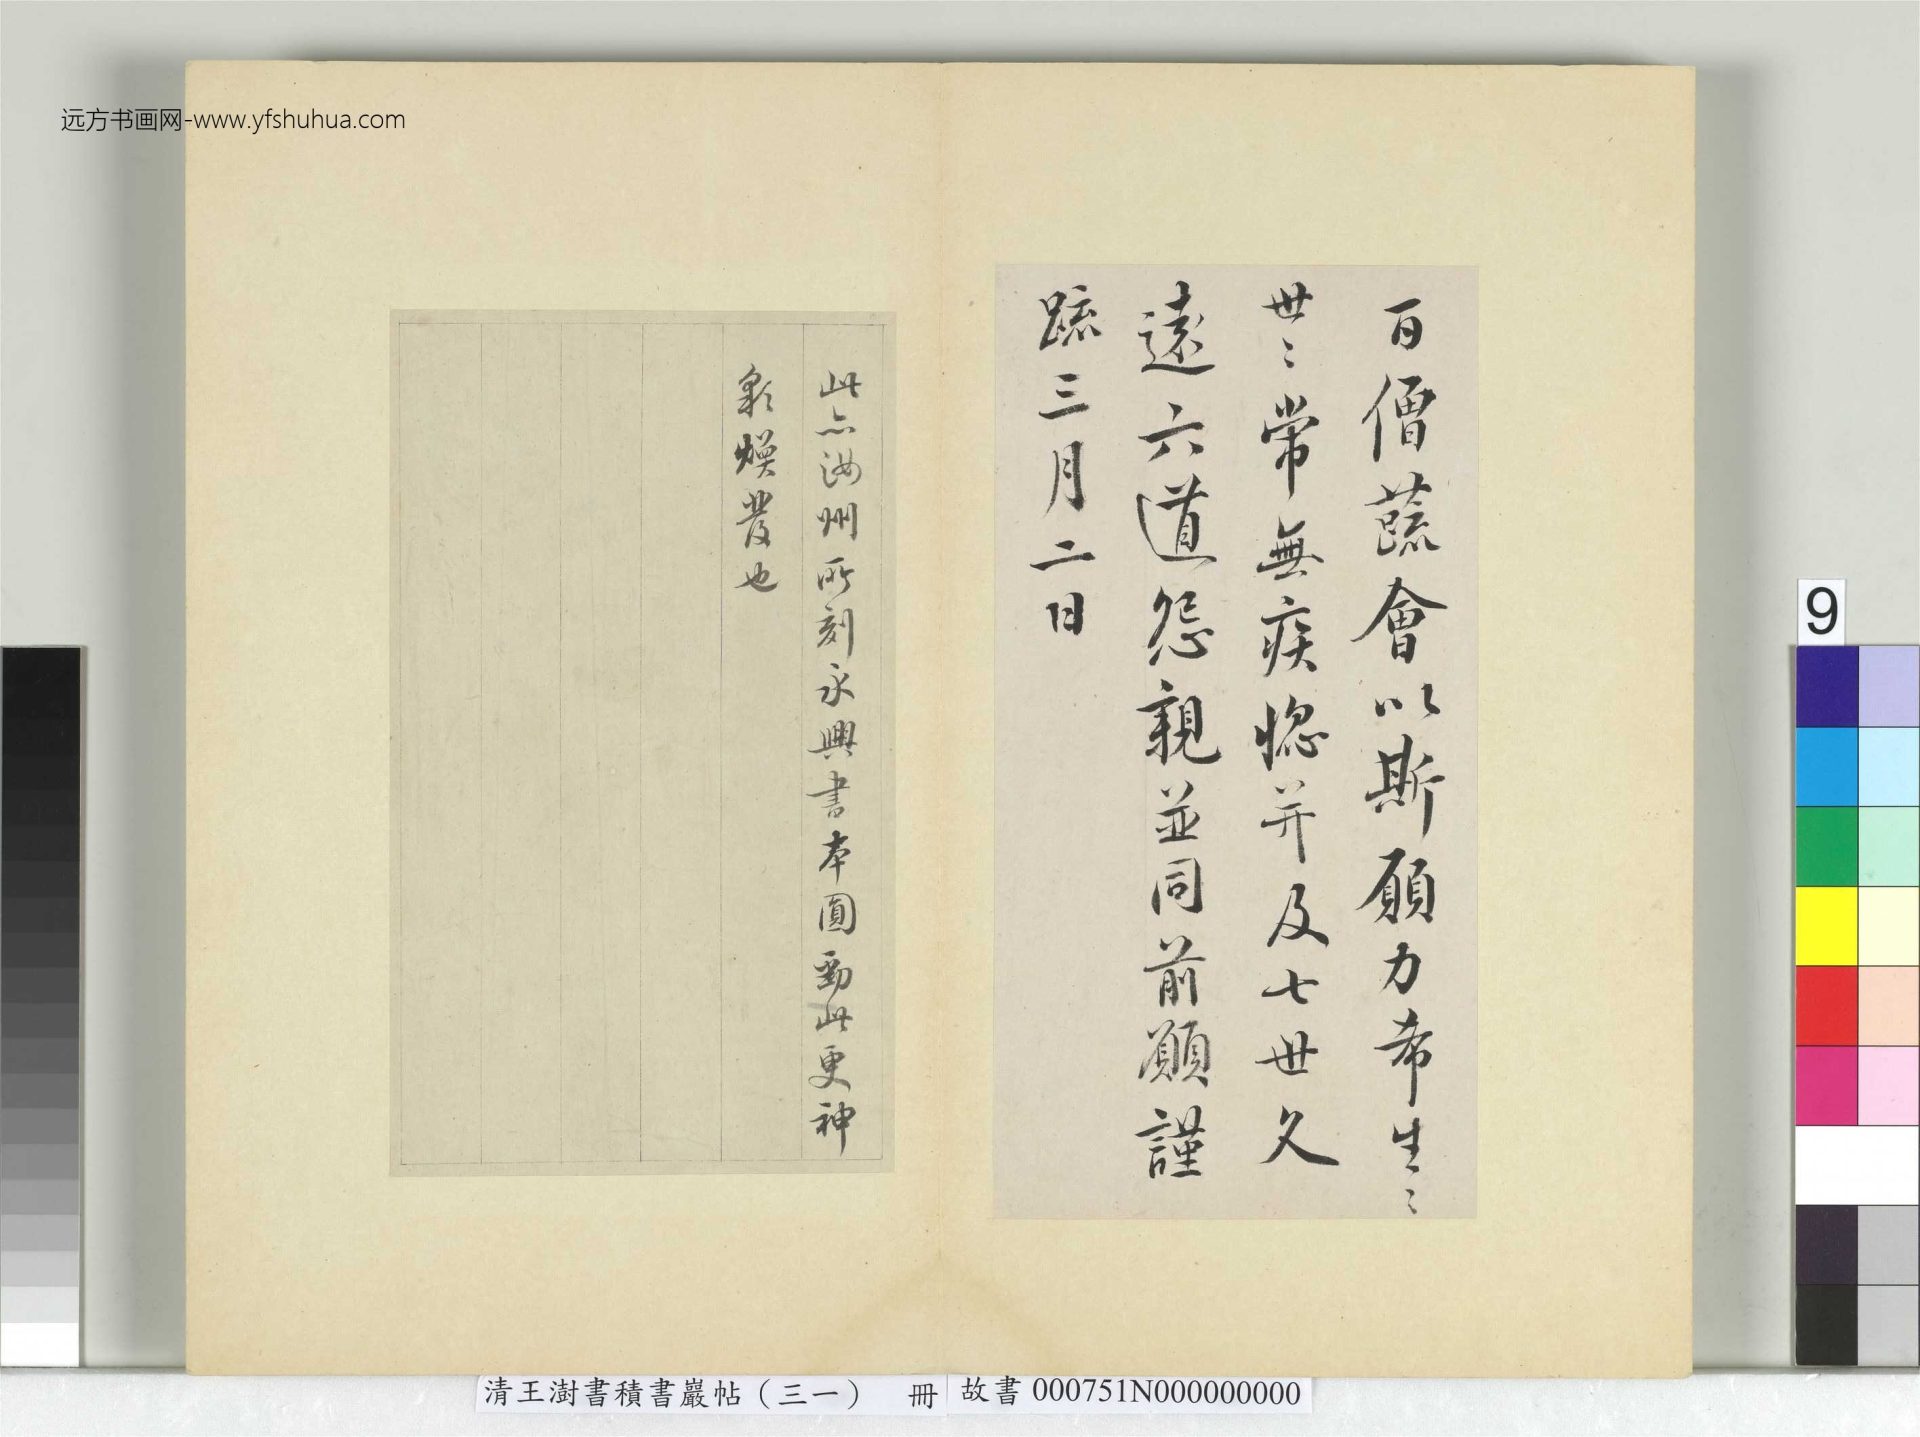 远方书画网-www.yfshuhua.com
百僧蔬會以斯願力希生〻
世〻常無疾惱并及七世久
遠六道怨親並同前願謹
疏三月二日
此亦汝州所刻永興書本圓勁此更神
彩煥發也
9
清王澍書積書巖帖（三一） 冊 故書 000751N000000000